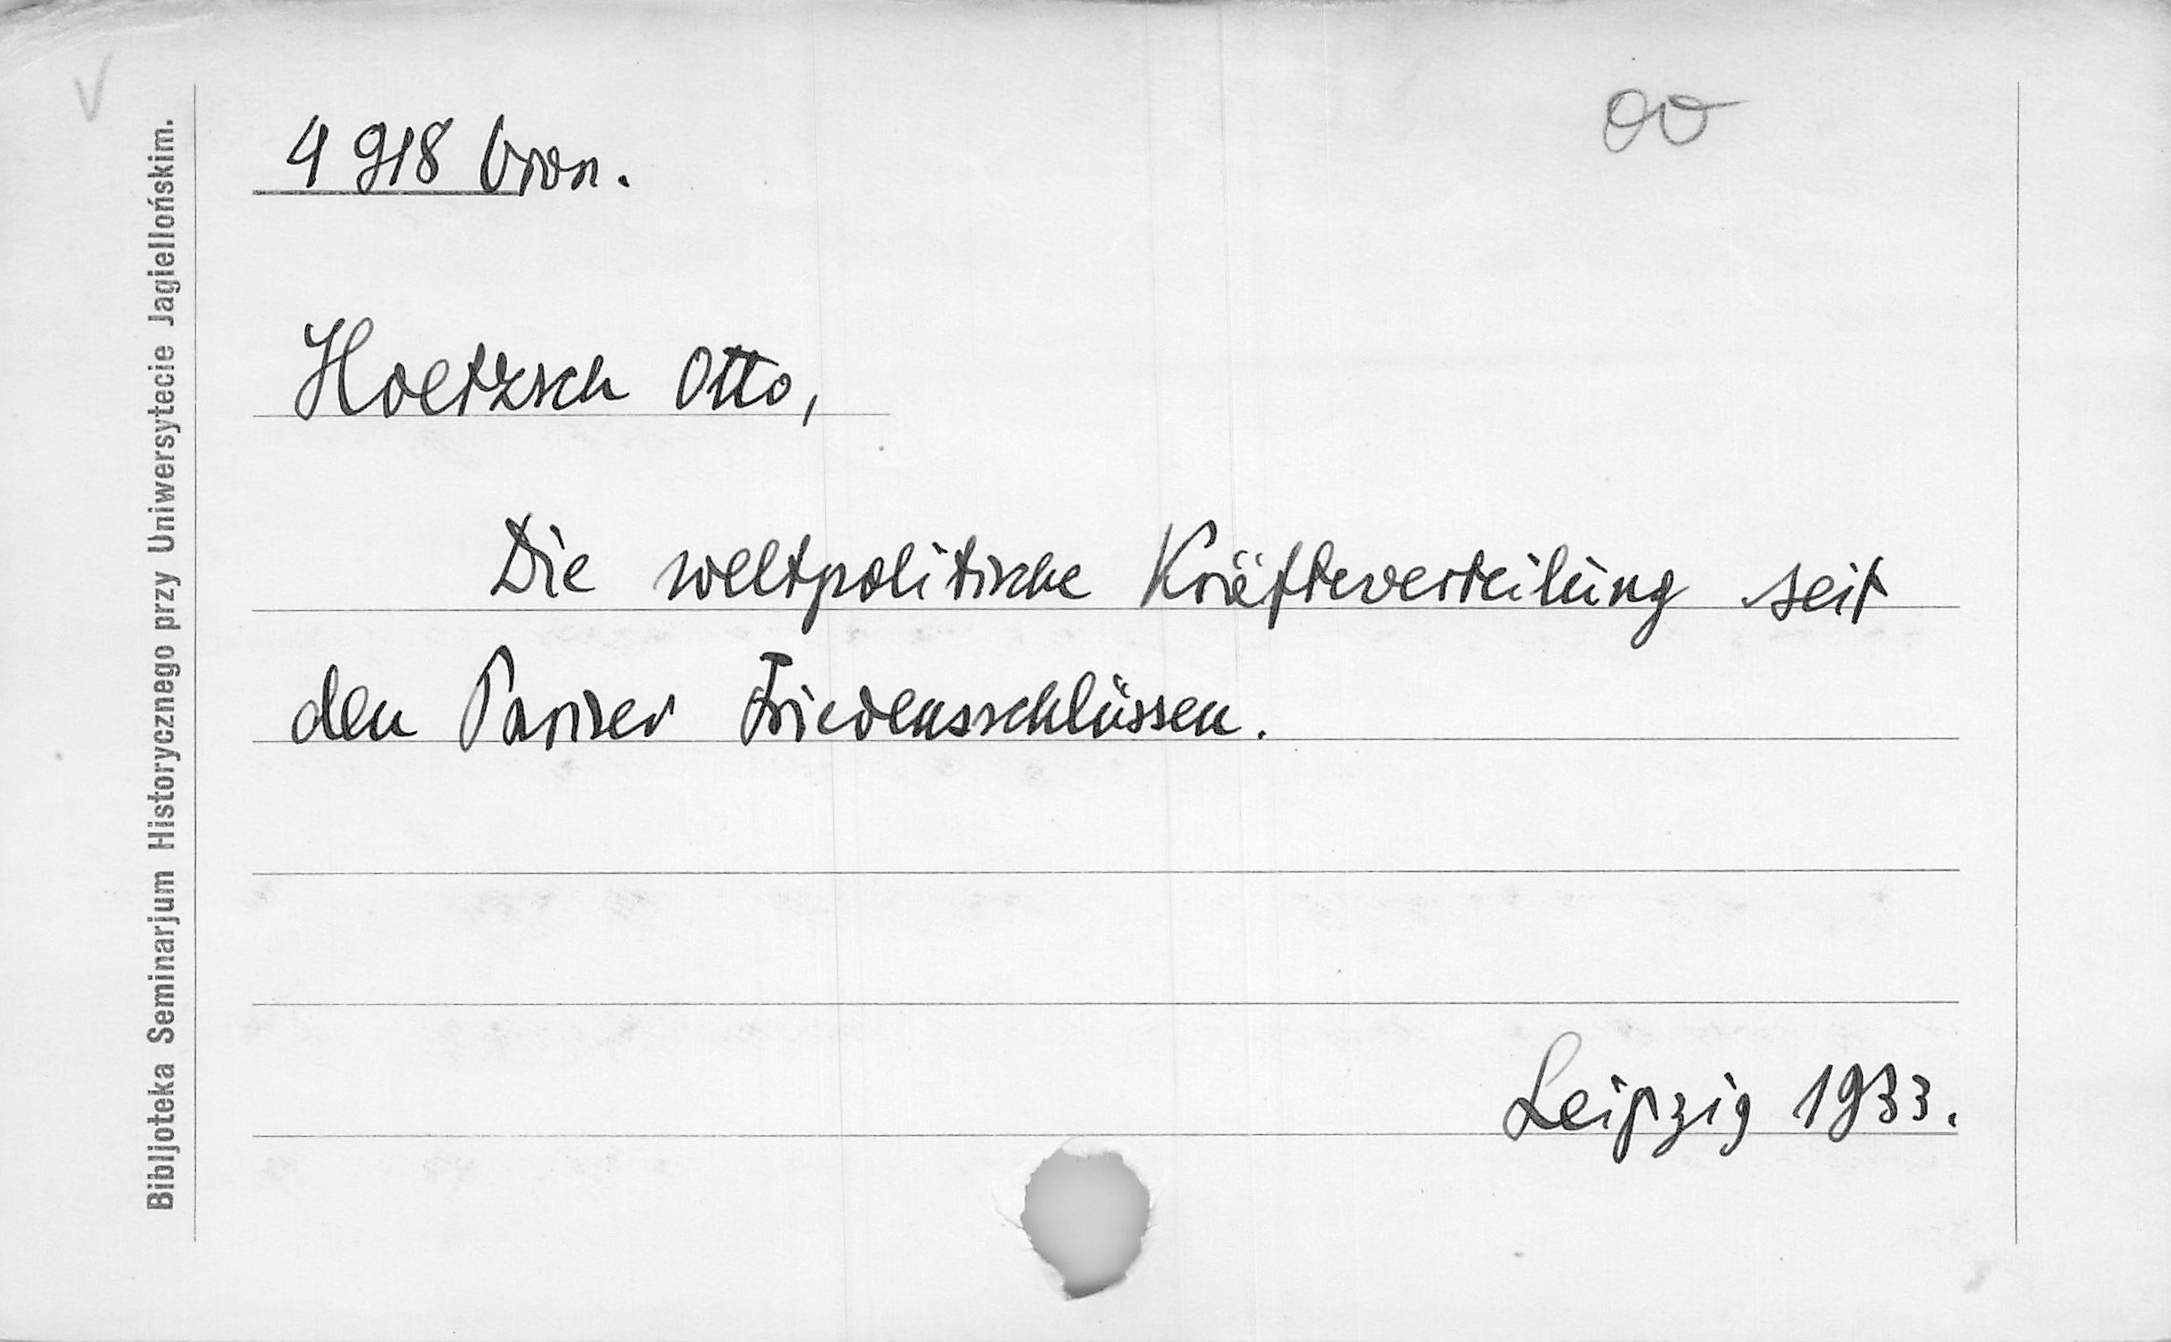 4 918 bron.
Hoetzsch Otto,
Die weltpolitische Kräfteverteilung seit
den Pariser Friedensschlüssen.
Leipzig 1933.
Bibljoteka Seminarjum Historycznego przy Uniwersytecie Jagiellońskim.